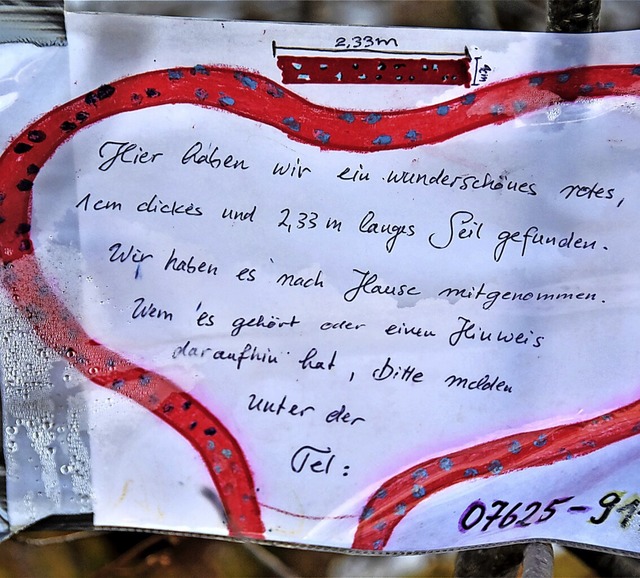 2,33m
1cm
Hier haben wir ein wunderschönes rotes,
1cm dickes und 2,33 m langes Seil gefunden.
Wir haben es nach Hause mitgenommen.
Wem es gehört oder einen Hinweis
daraufhin hat, bitte melden
unter der
Tel:
07625-91